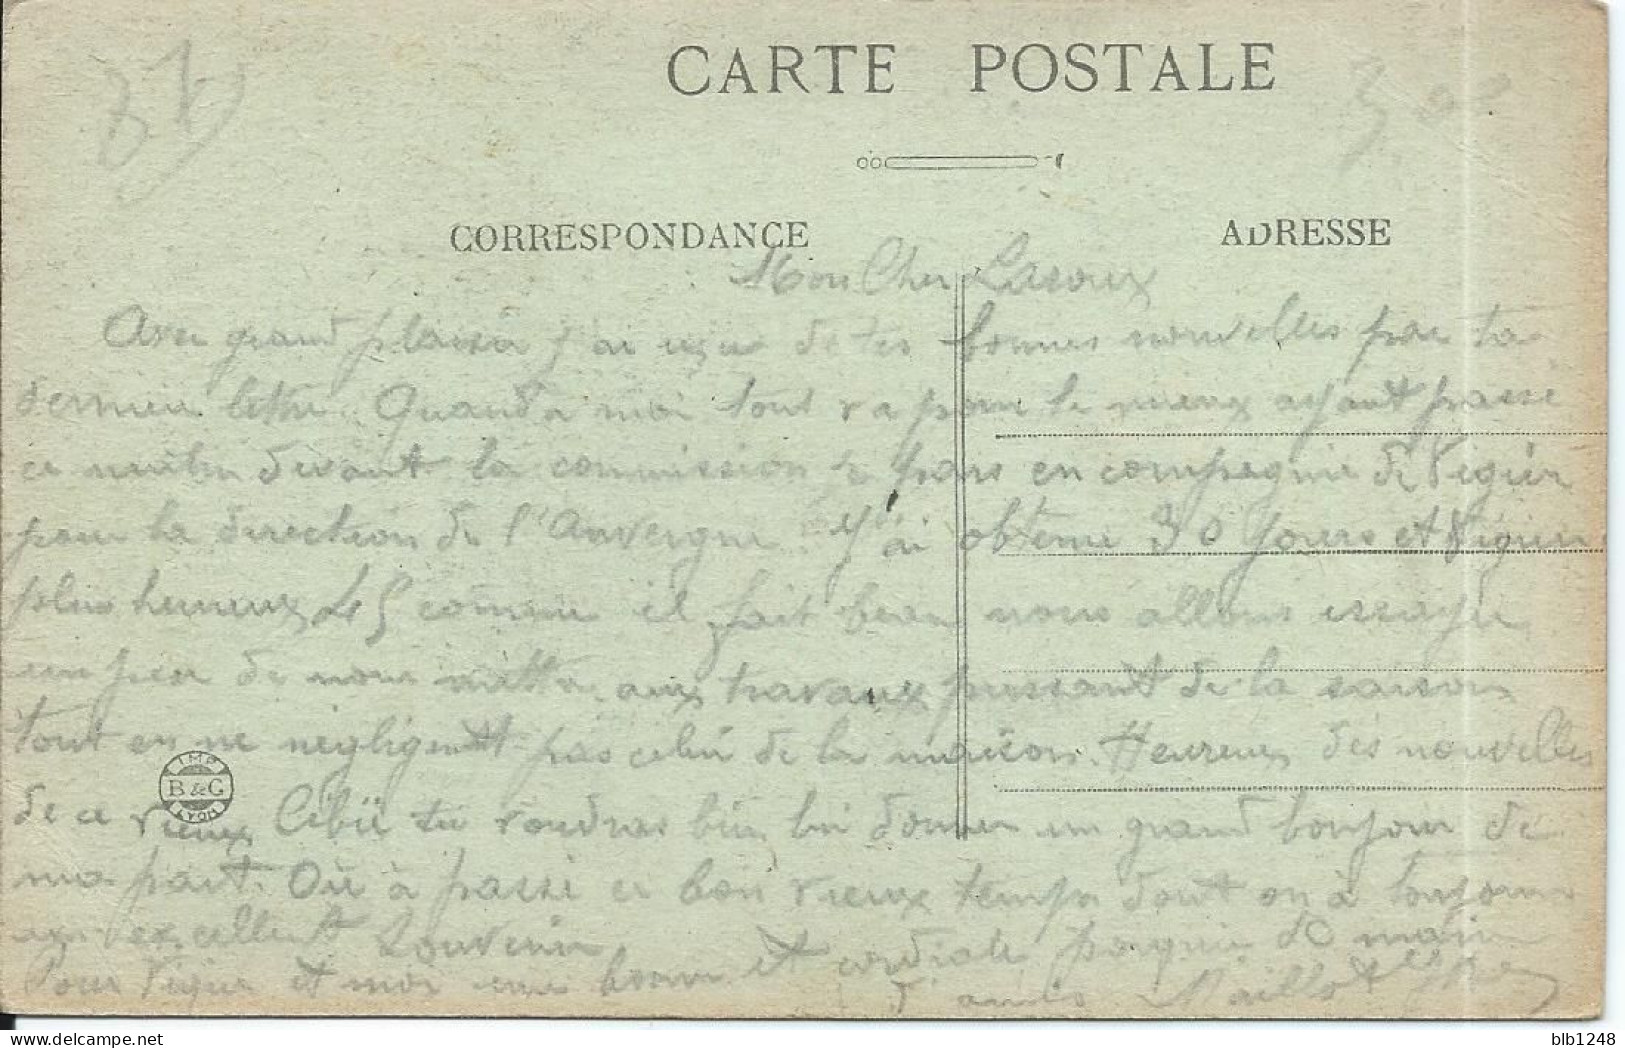 CARTE POSTALE
CORRESPONDANCE
ADRESSE
Mon Cher Laroux
Avec grand plaisir j'ai reçu de tes bonnes nouvelles par ta
dernier lettre. Quand a moi tout va pour le mieux ayant passé
ce matin devant la commission je pars en compagnie de Vigier
pour la direction de l'Auvergne J'ai obtenu 30 Jours et Vigier
plus heureux 45 comme il fait beau nous allons essayer
un peu de nous mettre aux travaux pressant de la saison
tout en ne negligent pas celui de la maison. Heureux des nouvelles
de ce vieux tu voudras bien lui donner un grand bonjour de
ma part. Où à passé ce bon vieux temps dont on à toujours
un excellent Souvenir
Pour Vigier et moi une bonne et cordiale poignée de main
d'amis Maillot
IMP
B & G
LYON
blb1248